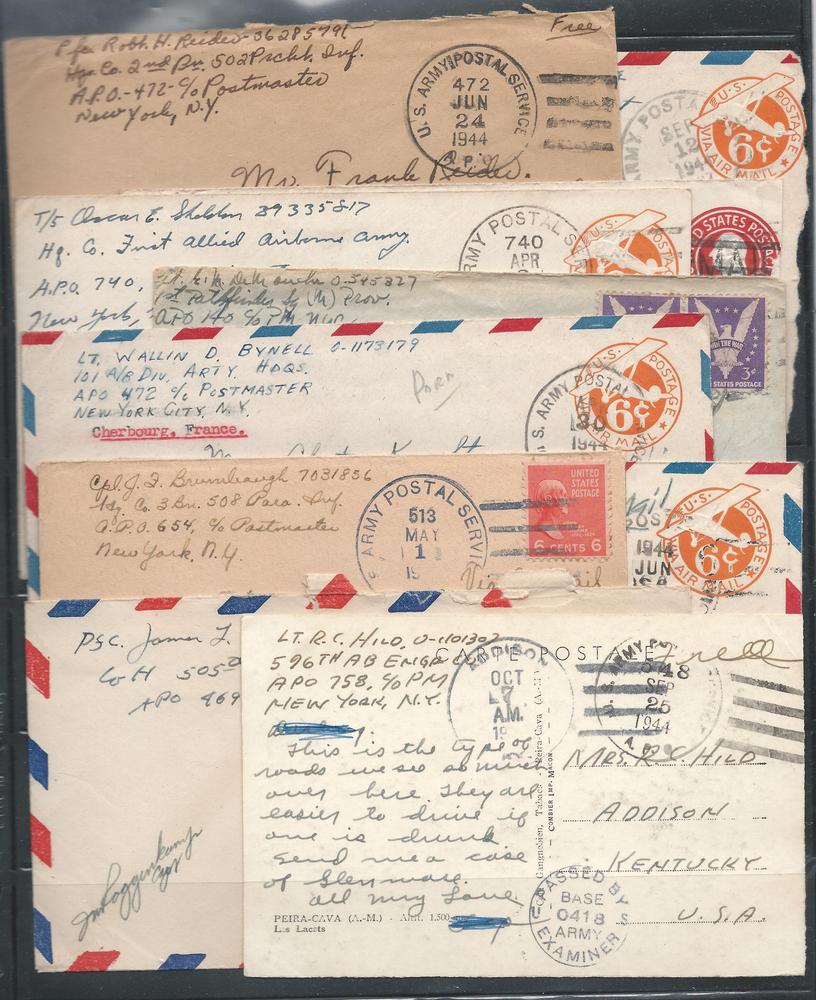 Pfc. Robt. H. Reider - 36285795
Hqs. Co. 2nd Bn. 502 Prcht. Inf.
A.P.O. - 472 - c/o Postmaster
New York, N.Y.
Free
U. S. ARMY POSTAL SERVICE
472
JUN
24
1944
A.P.O.
Mr. Frank Reider.
ARMY POSTA
SEP
12
194
U.S. POSTAGE
6¢
VIA AIR MAIL
T/5 Oscar E. Sheldon 39335817
Hq. Co. First Allied Airborne Army.
A.P.O. 740,
New York,
ARMY POSTAL S
740
APR
U.S.
POSTAGE
D STATES POST
1st Pathfinder (M) Prov.
APO 140 c/o PM NYC,
WIN THE WAR
3¢
STATES POSTAGE
LT. WALLIN D. BYNELL O-1173179
101 A/B DIV. ARTY. HDQS.
APO 472 c/o POSTMASTER
NEW YORK CITY, N.Y.
Cherbourg, France.
Para
S. ARMY POSTA
30
1944
U.S. POSTAGE
6¢
AIR MAIL
Cpl. J. F. Brumbaugh 7031856
Hq. Co. 3 Bn. 508 Para. Inf.
A.P.O. 654, c/o Postmaster
New York, N.Y.
ARMY POSTAL SERVI
513
MAY
1
19
UNITED
STATES
POSTAGE
6 CENTS 6
Via Air Mail
1944
JUN
U.S. POSTAGE
6¢
AIR MAIL
Pfc. James F.
Co H 505
APO 469
LT. R.C. HILD, O-1101307
596TH AB ENGR CO.
APO 758, c/o PM
NEW YORK, N.Y.
CARTE POSTALE
Free
ADDISON
OCT
7
A.M.
19
U. S. ARMY
SEP
25
1944
This is the type of
roads we see so much
over here They are
easier to drive if
one is drunk
Send me a case
of Glenmore.
All my Love
PEIRA-CAVA (A.-M.) - Alt. 1.500
Les Lacets
Tabacs, Peira-Cava (A.-M.)
COMBIER IMP. MACON
MRS. R.C. HILD
ADDISON
KENTUCKY
U.S.A.
PASSED BY
BASE
0418
ARMY
EXAMINER